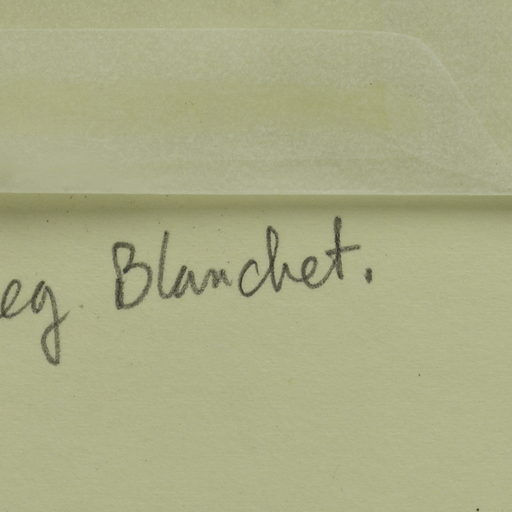 eg. Blanchet.